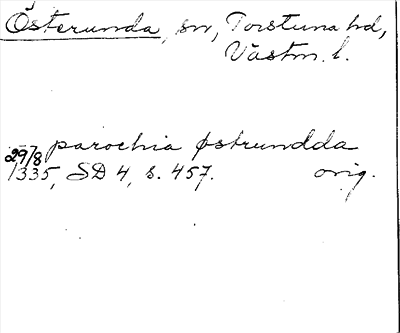 Österunda, sn, Torstuna hd,
Västm. l.
parochia østrundda
29/8
1335, SD 4, s. 457. orig.